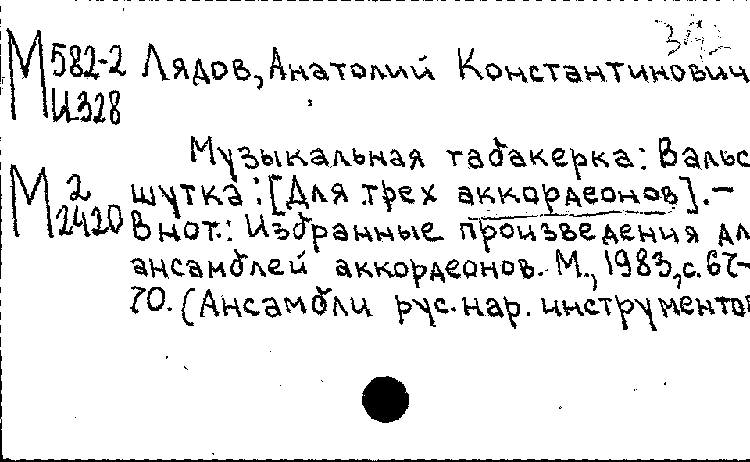 М 582-2 Лядов, Анатолий Константинович
И328
Музыкальная табакерка: Вальс
М 2 шутка: [Для трех аккордеонов]. –
2420 В нот.: Избранные произведения дл
ансамблей аккордеонов. М., 1983, с. 67-
70. (Ансамбли рус. нар. инструментов